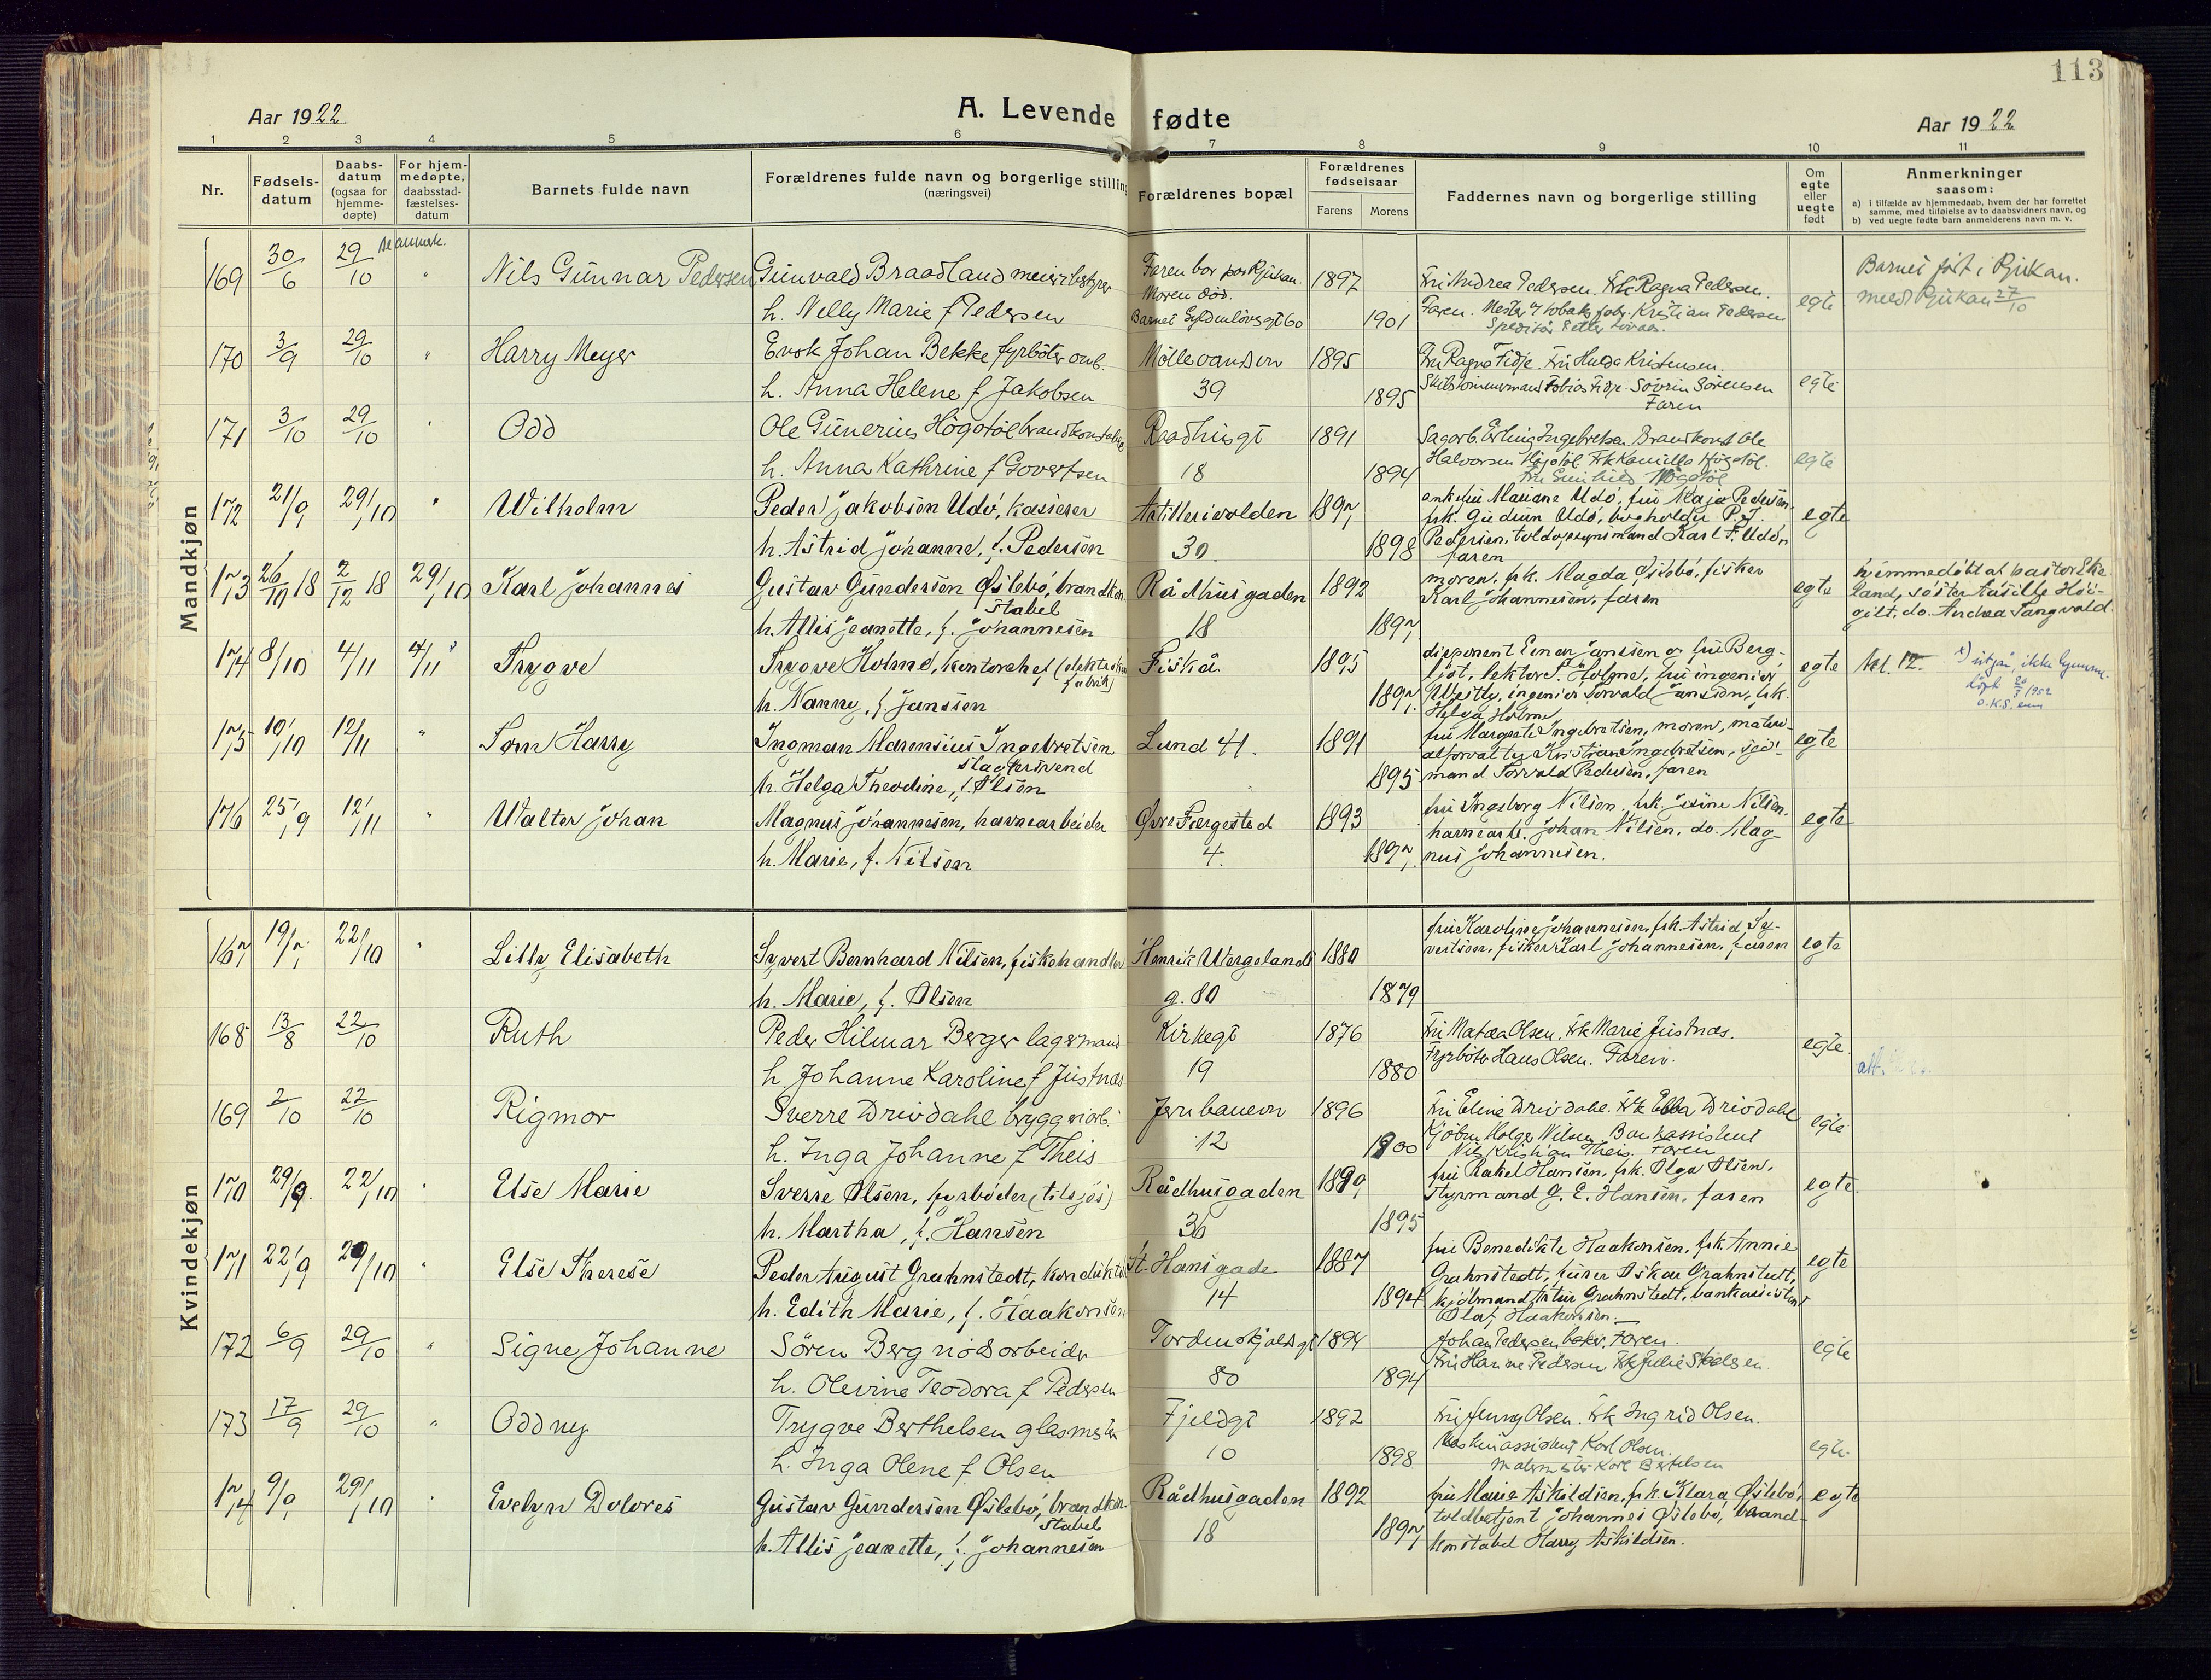 113
Aar 1922
A. Levende fødte
Aar 1922
1 2 3 4 5 6 7 8 9 10 11
Nr.
Fødsels-
datum
Daabs-
datum
(ogsaa for
hjemme-
døpte)
For hjem-
medøpte,
daabsstad-
fæstelses-
datum
Barnets fulde navn
Forældrenes fulde navn og borgerlige stilling
(næringsvei)
Forældrenes bopæl
Forældrenes
fødselsaar
Farens Morens
Faddernes navn og borgerlige stilling
Om
egte
eller
uegte
født
Anmerkninger
saasom:
a) i tilfælde av hjemmedaab, hvem der har forrettet
samme, med tilføielse av to daabsvidners navn, og
b) ved uegte fødte barn anmelderens navn m. v.
Mandkjøn
169 30/6 29/10 " Nils Gunnar Pedersen Gunvald Braadland meieribestyrer Faren bor paa Rjukan. 1897 Fru Andrea Pedersen. Frk Ragna Pedersen. egte Barnet født i Rjukan.
h. Nelly Marie f Pedersen Moren död. Barnet Gyldenlövesgt 60 1901 Faren. Kristian Pedersen meldt Rjukan 27/10
170 3/9 29/10 " Harry Meyer Enok Johan Bekke fyrböter omb. Möllevanden 1895 Fru Ragna Fidje. Fru Hulda Kristensen. egte
h. Anna Helene f Jakobsen 39 1895 Skibstömmermand Tobias Fidje. Sövrin Sörensen
Faren
171 3/10 29/10 " Odd Ole Gunerius Högstöl brandkonstabel Raadhusgt 1891 Sagarb. Erling Ingebretsen. Brandkonst Ole egte
h. Anna Kathrine f Govertsen 18 1894 Halvorsen Högstöl. Frk Kamilla Högstöl.
Högstöl
172 21/9 29/10 " Wilhelm Peder Jakobsen Udö, kasserer Artillerivolden 1897 enkefru Mariane Udö, fru Maja Pedersen, egte
h. Astrid Johanne, f. Pedersen 30. 1898 frk. Gudrun Udö, bogholder P. J.
Pedersen, toldopsynsmand Karl F. Udö,
faren
173 26/10 18 2/12 18 29/10 Karl Johannes Gustav Gundersen Øslebö, brandkon- Rådhusgaden 1892 moren, frk. Magda Øslebö, fisker egte hjemmedöbt af pastor Eke-
stabel Karl Johannesen, faren land, söster Höi-
h. Allis Jeanette, f. Johannesen 18 1897 gilt, do. Andrea Tangvald
174 8/10 4/11 4/11 Trygve Trygve Holme, kontorchef (elektrokem. Fiskå. 1895 disponent Einar Janssen og fru Berg- egte
fabrik) ljot, lektor T. Holme, fru ingeniör
h. Nanny, f. Janssen 1897. ingeniör Torvald Janssen, frk.
Helga Holme
175 10/10 12/11 " Tom Harry Ingman Marensius Ingebretsen Lund 41. 1891 fru Margrete Ingebretsen, moren, materi- egte
slagtersvend alforvalter Kristian Ingebretsen, sjö-
h. Helga Theodine, f. Olsen 1895 mand Torvald Pedersen, faren
176 25/9 12/11 " Walter Johan Magnus Johannesen, havnearbeider Øvre Færgested 1893 fru Ingeborg Nilsen, frk. Josine Nilsen, egte
h. Marie, f. Nilsen 4. 1897. havnearb. Johan Nilsen, do. Mag-
nus Johannesen.
Kvindekjøn
167 19/7 22/10 " Lilly Elisabeth Syvert Bernhard Nilsen, fiskehandler Henrik Wergelands 1880 fru Karoline Johannesen, frk. Astrid Sy- egte
h. Marie, f. Olsen g. 80 1879 vertsen, fisker Karl Johannesen, faren
168 13/8 22/10 Ruth Peder Hilmar Berger lagermand Kirkegt 1876 Fru Matea Olsen. Frk Marie Justnæs. egte
h. Johanne Karoline f Justnæs 19 1880 Fyrböter Hans Olsen. Faren.
169 2/10 22/10 Rigmor Sverre Drivdahl bryggeriarb. Jernbaneven 1896 Fru Eline Drivdahl. Frk Ebba Drivdahl egte
h. Inga Johanne f Theis 12 1900 Kjöbm Holge Nilsen Bankassistent
Nils Kristian Theis. Faren
170 29/9. 22/10 " Else Marie Sverre Olsen, fyrböder (tilsjös) Rådhusgaden 1890 fru Rakel Hansen, frk. Olga Olsen, egte
h. Martha, f. Hansen 36 1895 styrmand G. E. Hansen, faren
171 22/9 29/10 " Else Therese Peder August Grahnstedt, konduktör St. Hansgade 1887 fru Benedikte Haakonsen, frk. Annie egte
h. Edith Marie, f. Haakonsen 14 1894 Grahnstedt, furer Oskar Grahnstedt,
kjöbmand Grahnstedt, bankassistent
Olaf Haakonsen.
172 6/9 29/10 " Signe Johanne Sören Berg nödsarbeider Tordenskjoldsgt 1894 Johan Pedersen baker. Faren. egte
h. Olevine Teodora f Pedersen 80 1894 Fru Hanne Pedersen Frk Julie
173 17/9 29/10 " Oddny Trygve Berthelsen glasmester Fjeldgt 1892 Fru Jenny Olsen. Frk Ingrid Olsen. egte
h. Inga Olene f Olsen 10 1898 Karl Olsen.
Malermester Karl Bertelsen
174 9/9 29/10 " Evelyn Dolores Gustav Gundersen Øslebö, brandkon- Rådhusgaden 1892 fru Marie Askildsen, frk. Klara Øslebö, egte
stabel toldbetjent Johannes Øslebö, brand-
h. Allis Jeanette, f. Johannesen 18 1897 konstabel Harry Askildsen.